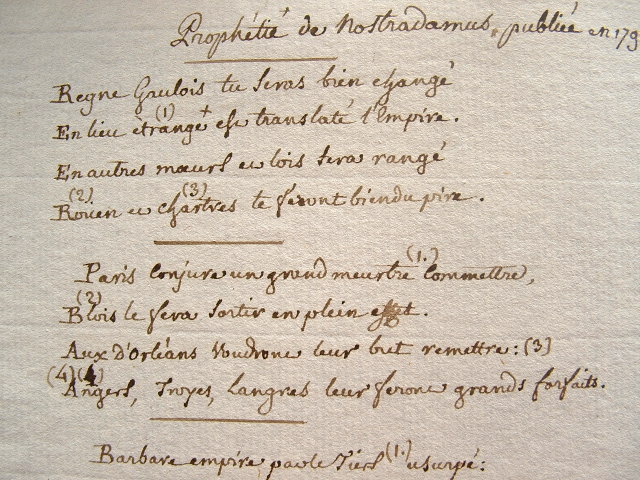 Prophétie + de Nostradamus, publiée en 179
Regne Gaulois tu seras bien changé
En lieu étrange (1) + est translaté l'Empire.
En autres mœurs et lois sera rangé
(2) Rouen et (3) chartres te feront bien du pire.
Paris conjure un grand meurtre (1.) Commettre,
(2) Blois le fera sortir en plein effet.
Aux d'Orléans voudront leur but remettre: (3)
(4) (4) Angers, Troyes, Langres leur feront grands forfaits.
Barbare empire par le Tiers (1.) usurpé: